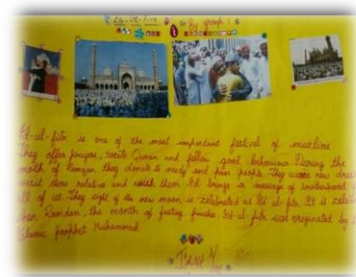 Id-Ul-Fitr By group 1
Id-ul-fitr is one of the most important festival of muslims
They offer prayers, recite Quran and follow good behaviour. During the
month of Ramzan they donate to needy and poor people. They wear new dress
visit there relative and wish them Id brings a message of brotherhood
all of us. They sight of the new moon is celebrated as Id ul fitr. It is
when Ramdan, the month of fasting finishes. Id-ul-fitr was originated by
Islamic prophet Muhammad.